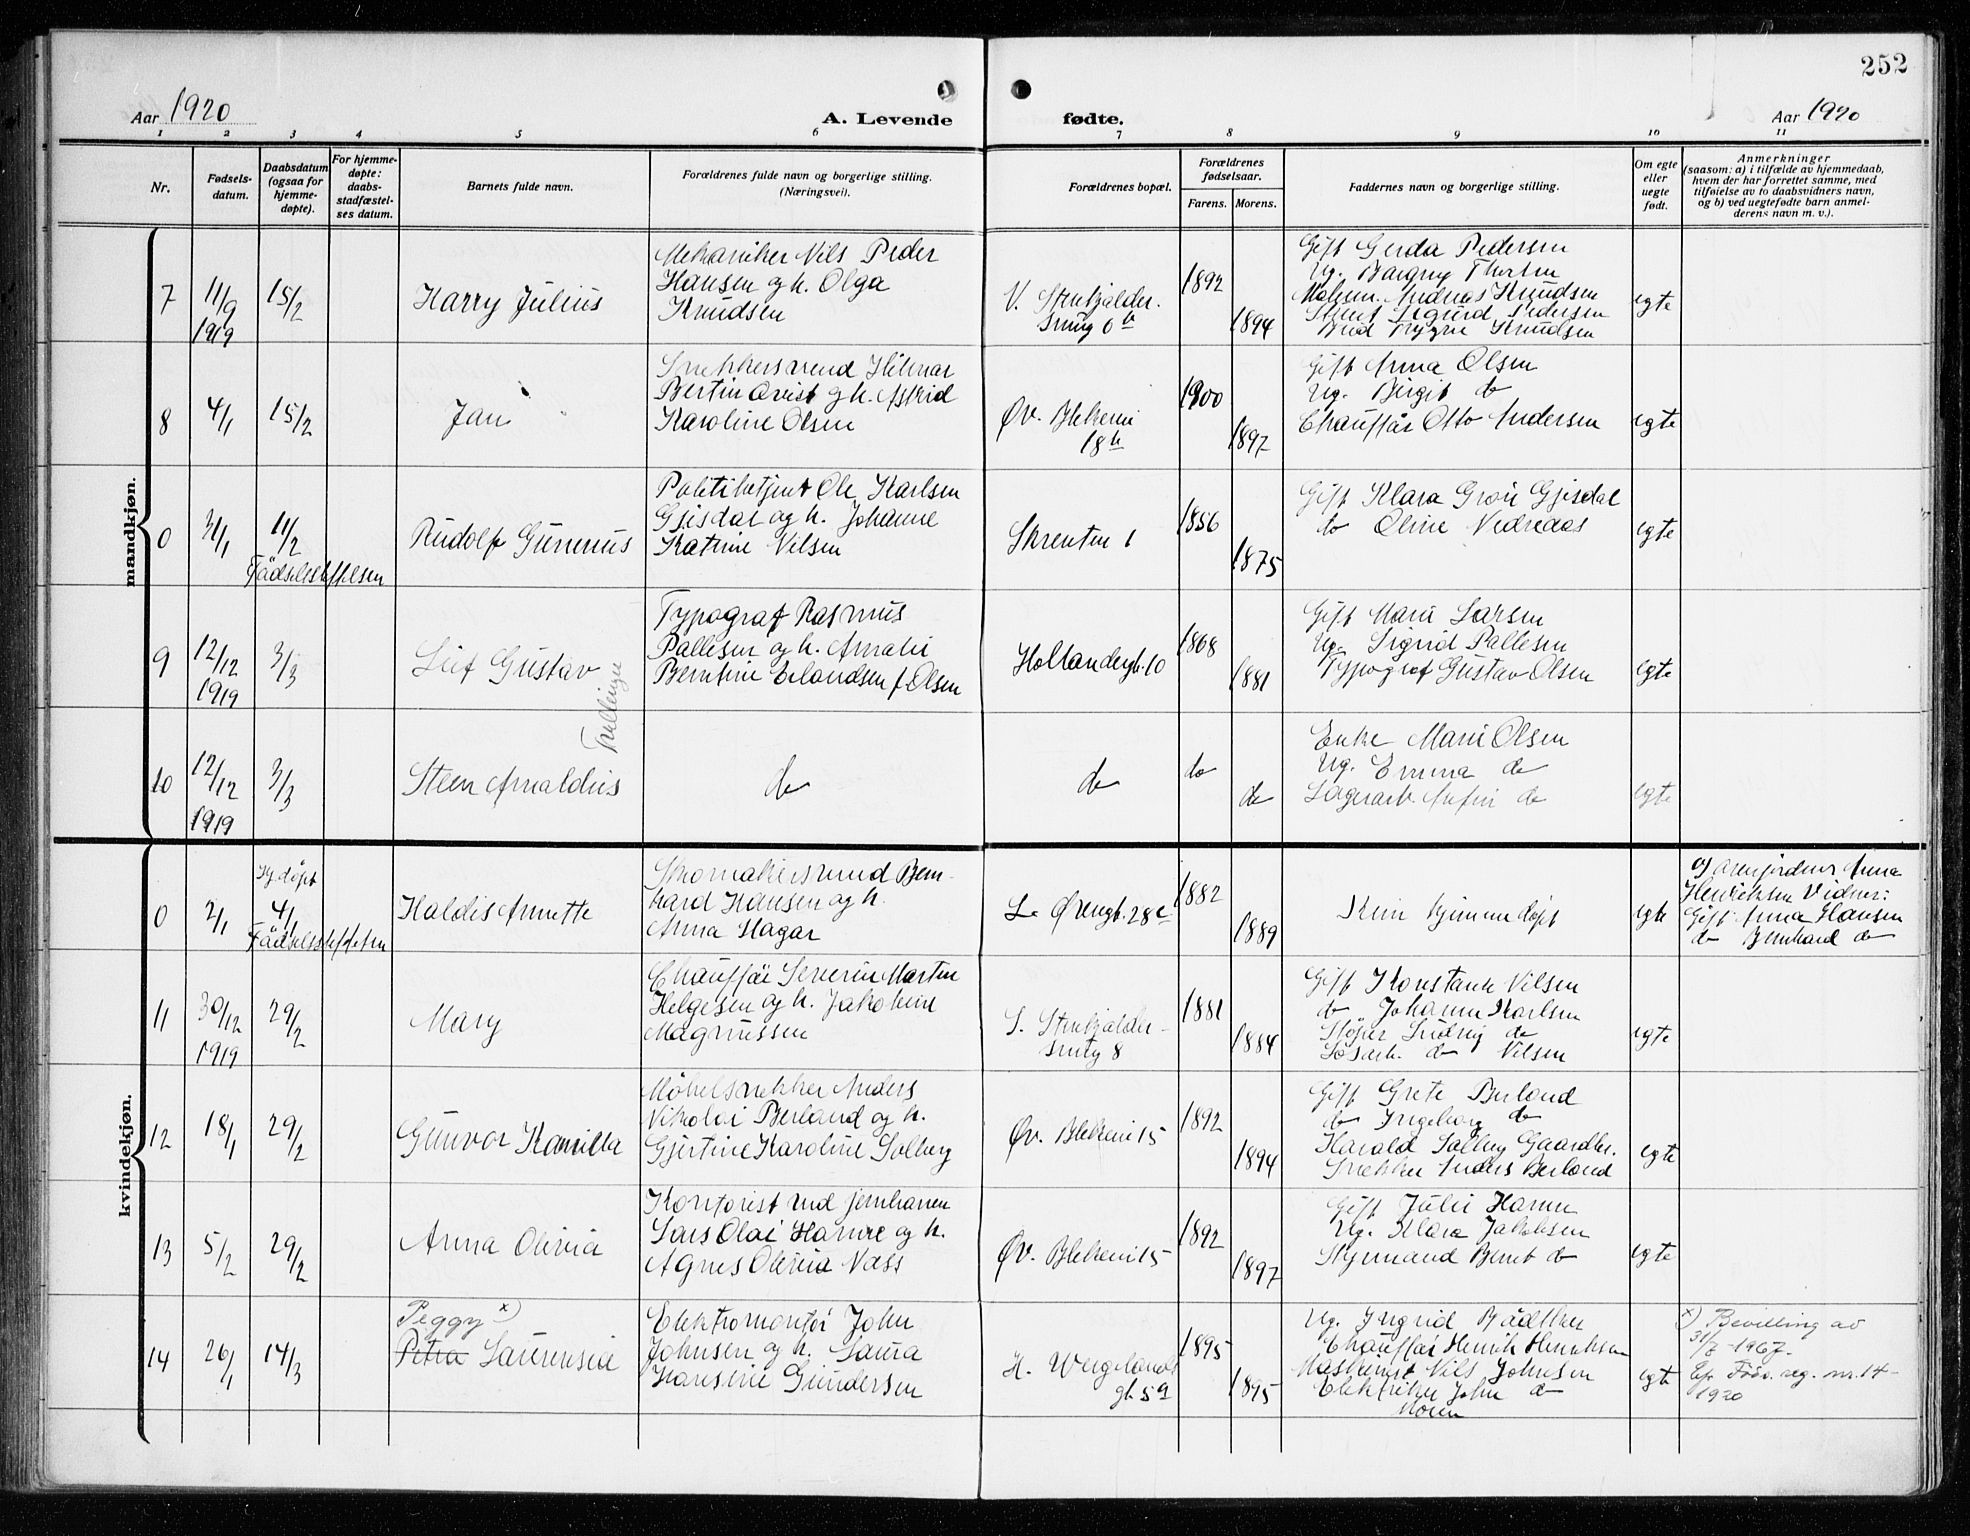 252
Aar 1920
A. Levende fødte.
Aar 1920
1 2 3 4 5 6 7 8 9 10 11
Nr.
Fødsels-
datum.
Daabsdatum
(ogsaa for
hjemme-
døpte).
For hjemme-
døpte:
daabs-
stadfæstel-
ses datum.
Barnets fulde navn.
Forældrenes fulde navn og borgerlige stilling.
(Næringsvei).
Forældrenes bopæl.
Forældrenes
fødselsaar.
Farens. Morens.
Faddernes navn og borgerlige stilling.
Om egte
eller
uegte
født.
Anmerkninger
(saasom: a) i tilfælde av hjemmedaab,
hvem der har forrettet samme, med
tilføielse av to daabsvidners navn,
og b) ved uegtefødte barn anmel-
derens navn m. v.).
mandkjøn.
7
11/9
1919
15/2
Harry Julius
Mekaniker Nils Peder
Hansen og h. Olga
Knudsen
V. Strukjalder-
smug 6b
1892
1894
Gift Gerda Pedersen
Ug. Borgny
Andreas Knudsen
Sigurd Pedersen
Trygve Knudsen
egte
8
4/1
15/2
Jan
Snekkersvend Hilmar
Bertin Qvist og h. Astrid
Karoline Olsen
Øv. Blekevei
18b
1900
1897
Gift Anna Olsen
Ug. Birgit do
Chauffør Otto Andersen
egte
0
31/1
11/2
Fødselsstiftelsen
Rudolf Gunerius
Politibetjent Ole Karlsen
Gjesdal og h. Johanne
Katrine Nilsen
Skrenten 1
1856
1875
Gift Klara Gjesdal
do Oline Nedreaas
egte
9
12/12
1919
3/3
Leif Gustav
Tvillinger
Typograf Rasmus
Pallesen og h. Amalie
Berntine Erlandsen f. Olsen
Hollendergt. 10
1868
1881
Gift Marie Larsen
Ug. Sigrid Pallesen
Typograf Gustav Olsen
egte
10
12/12
1919
3/3
Steen Arnaldus
do
do
do
do
Enke Marie Olsen
Ug. Emma do
Lagerarb. do
egte
kvindekjøn.
0
2/1
Hj. døpt
4/1
Fødselsstiftelsen
Haldis Annette
Skomakersvend Bern-
hard Hansen og h.
Anna Hagar
L. Øvregt. 28c
1882
1889
Kun hjemmedøpt
egte
af Jordmor Anna
Henriksen Vidner:
Gift Anna Hansen
do Bernhard do
11
30/12
1919
29/2
Mary
Chauffør Severin Martin
Helgesen og h. Jakobine
Magnussen
S. Strukjalder-
smug 8
1881
1884
Gift Konstanse Nilsen
do Johanne Karlsen
Ludvig do
Løsarb. do Nilsen
egte
12
18/1
29/2
Gunvor Kamilla
Møbelsnekker Anders
Nikolai Berland og h.
Gjertine Karoline Solberg
Øv. Blekevei 15
1892
1894
Gift Grete Berland
do Ingeborg do
Harald Solberg Gaardbr.
Snekker Anders Berland
egte
13
5/2
29/2
Anna Olivia
Kontorist ved jernbanen
Lars Olai Hamre og h.
Agnes Olivia Næss
Øv. Blekevei 15
1892
1897
Gift Julie Hamre
Ug. Klara Jakobsen
Styrmand Bernt do
egte
14
26/1
14/3
Peggy x)
Petra Laurensia
Elektromontør John
Johnsen og h. Laura
Hansine Gundersen
H. Wergelands
gt. 5a
1895
1895
Ug. Ingrid Bådtker
Chauffør Henrik Henriksen
Maskinist Nils Johnsen
Elektriker John do
Moren
egte
x) Bevilling av
31/7-1967.
Efr. Fødv. reg. nr. 14-
1920